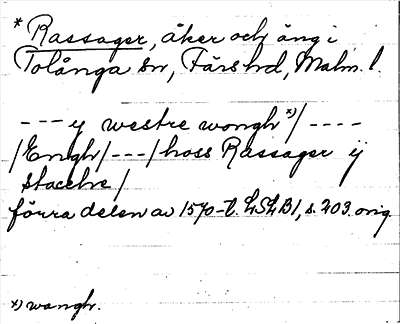 * Rassager, åker och äng i
Tolånga sn, Färs hd, Malm. l.
--- y westre wongh *)/ ----
/Engh/---/hoss Rassager ij
stæcke/
förra delen av 1570-t. LSLB1, s. 203. orig
*) wangh.